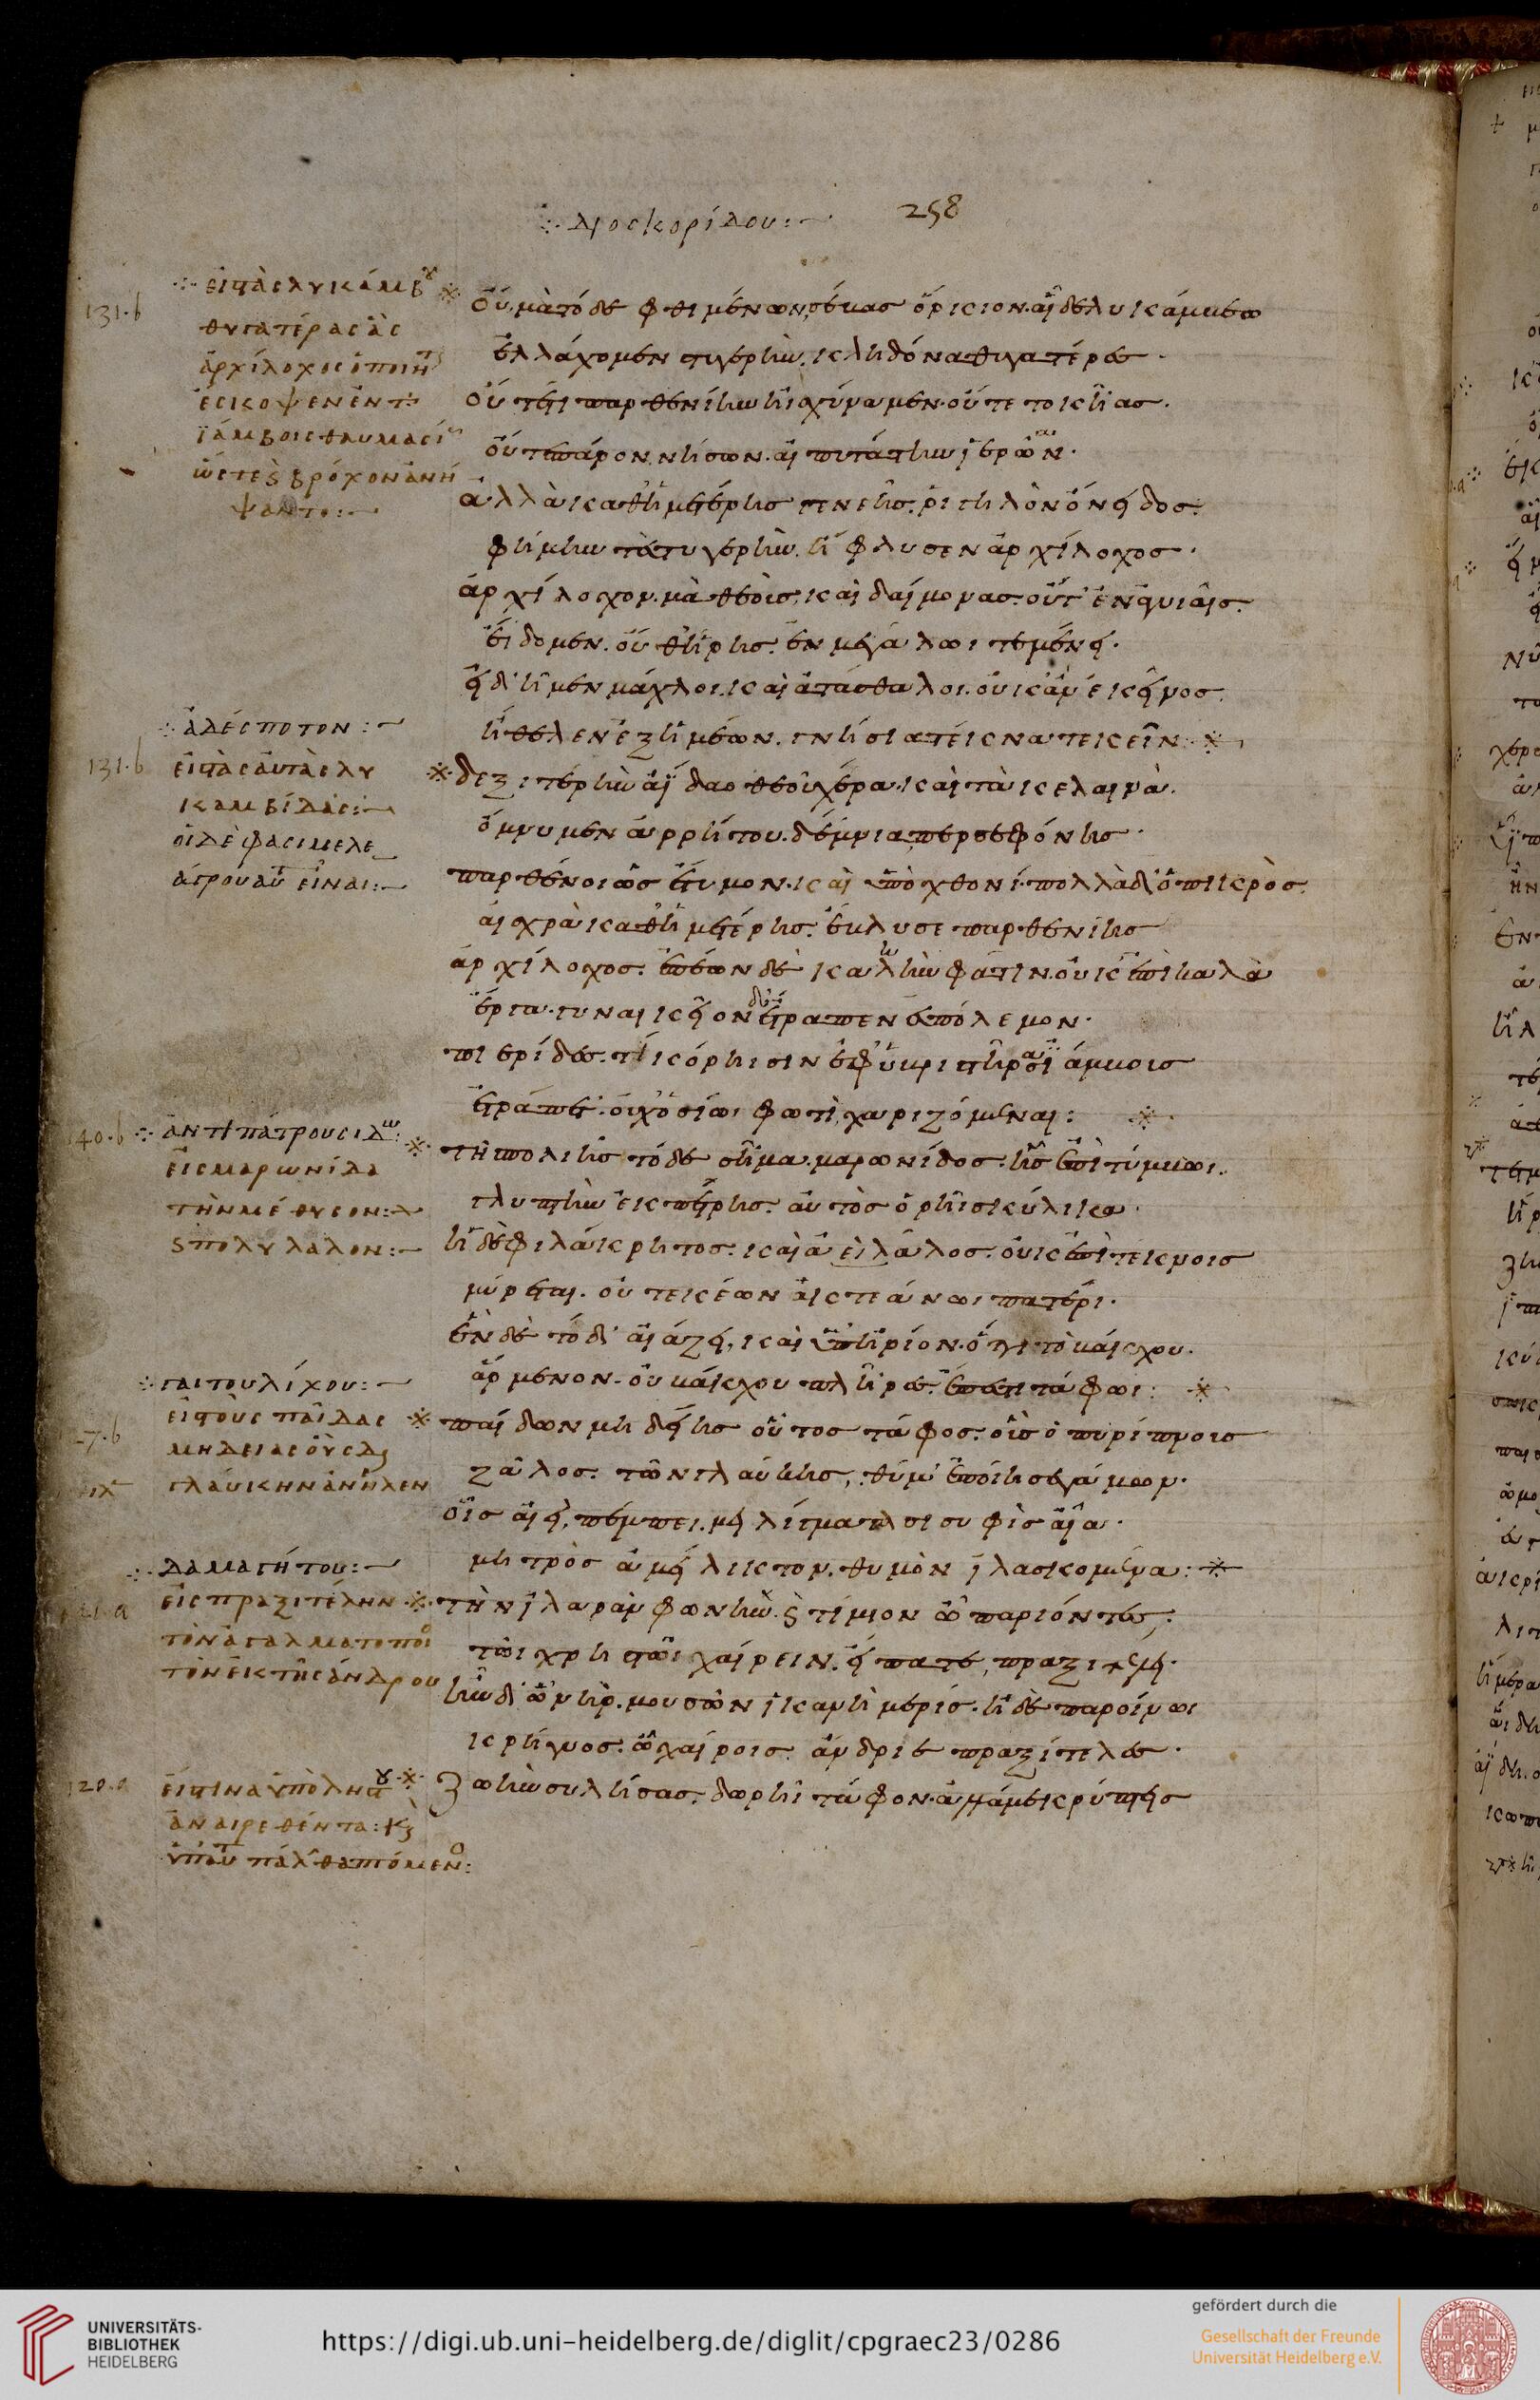 258
Διοσκορίδου:
131.b
εἰς τὰς Λυκάμβου
θυγατέρας ἃς
Ἀρχίλοχος ὁ ποιητὴς
ἔσκοψεν ἐν τοῖς
ἰάμβοις θαυμασίως
ὥστε καὶ βρόχον ἀνή
ψαντο:
οὐ μὰ τόδε φθιμένων σέβας ὅρκιον αἵδε Λυκάμβεω
ἐλλάχομεν στυγερὴν κληδόνα θυγατέρες
οὔτέ τι παρθενίην ᾐσχύναμεν οὔτε τοκῆας
οὔτε Πάρον νήσων αἰπυτάτην ἱερῶν
ἀλλὰ καθ' ἡμετέρης γενεῆς ῥιγηλὸν ὄνειδος
φήμην τε στυγερὴν ἤφλυσεν Ἀρχίλοχος
Ἀρχίλοχον μὰ θεοὺς καὶ δαίμονας οὔτ' ἐν ἀγυιαῖς
εἴδομεν οὔθ' Ἥρης ἐν μεγάλωι τεμένει
εἰ δ' ἦμεν μάχλοι καὶ ἀτάσθαλοι οὐκ ἂν ἐκεῖνος
ἤθελεν ἐξ ἡμέων γνήσια τέκνα τεκεῖν
ἀδέσποτον:
131.b
εἰς τὰς αὐτὰς Λυ
καμβίδας:
οἱ δέ φασι Μελε
άγρου αὐτὸ εἶναι:
δεξιτερὴν Ἀΐδαο θεοῦ χέρα καὶ τὰ κελαινὰ
ὄμνυμεν ἀρρήτου δέμνια Περσεφόνης
παρθένοι ὡς ἔτυμον καὶ ὑπὸ χθονί πολλὰ δ' ὁ πικρὸς
αἰσχρὰ καθ' ἡμετέρης ἔβλυσε παρθενίης
Ἀρχίλοχος ἐπέων δὲ καλὴν φάτιν οὐκ ἐπὶ καλὰ
ἔργα γυναικεῖον δ' ἔτραπεν ἐς πόλεμον
Πιερίδες τί κόρῃσιν ἐφ' ὑβριστῆρας ἰάμβους
ἐτράπετ' οὐχ ὁσίωι φωτὶ χαριζόμεναι:
140.b
Ἀντιπάτρου Σιδω:
εἰς Μαρωνίδα
τὴν μέθυσον:
καὶ πολύλαλον:
τῆς πολιῆς τόδε σῆμα Μαρωνίδος ἧς ἐπὶ τύμβωι
γλυπτὴν ἐκ πέτρης αὐτὸς ὁρῇς κύλικα
ἡ δὲ φιλάκρητος καὶ ἀεὶ λάλος οὐκ ἐπὶ τέκνοις
μύρεται οὐ τεκέων ἀκτεάνωι πατέρι
ἓν δὲ τόδ' αἰάζει καὶ ὑπ' ἠρίον ὅττι τὸ Βάκχου
ἄρμενον οὐ Βάκχου πλῆρες ἔπεστι τάφωι:
Γαιτουλίχου:
εἰς τοὺς παῖδας
Μηδείας οὓς διὰ
Γλαύκην ἀνεῖλεν
παίδων Μηδείης οὗτος τάφος οἷς ὁ πυρίπνους
ζᾶλος τῶν Γλαύκης θῦμ' ἐποίησε γάμων
οἷς αἰεὶ πέμπει μειλίγματα Σισυφὶς αἶα
μητρὸς ἀμείλικτον θυμὸν ἱλασκομένα:
Δαμαγήτου:
εἰς Πραξιτέλην
τὸν ἀγαλματοποιὸν
τὸν ἐκ τῆς Ἄνδρου
τὴν ἱλαρὰν φωνὴν καὶ τίμιον ὦ παριόντες
τῶι χρηστῶι χαίρειν εἴπατε Πραξιτέλει
ἦν δ' ὡνὴρ Μουσῶν ἱκανὴ μερίς ἠδὲ παρ' οἴνωι
κρήγυος ὦ χαίροις Ἄνδριε Πραξίτελες
120.a
εἴς τινα ὑπὸ λῃστοῦ
ἀναιρεθέντα: καὶ
ὑπ' αὐτοῦ πάλιν θαπτόμενον:
ζωὴν συλήσας δωρῇ τάφον ἀλλά με κρύπτεις
UNIVERSITÄTS-
BIBLIOTHEK
HEIDELBERG
https://digi.ub.uni-heidelberg.de/diglit/cpgraec23/0286
gefördert durch die
Gesellschaft der Freunde
Universität Heidelberg e.V.